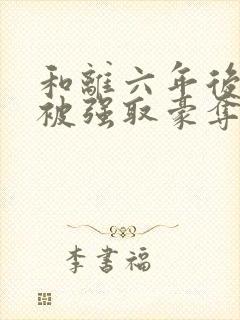 和離六年後
被强取豪奪
李書福